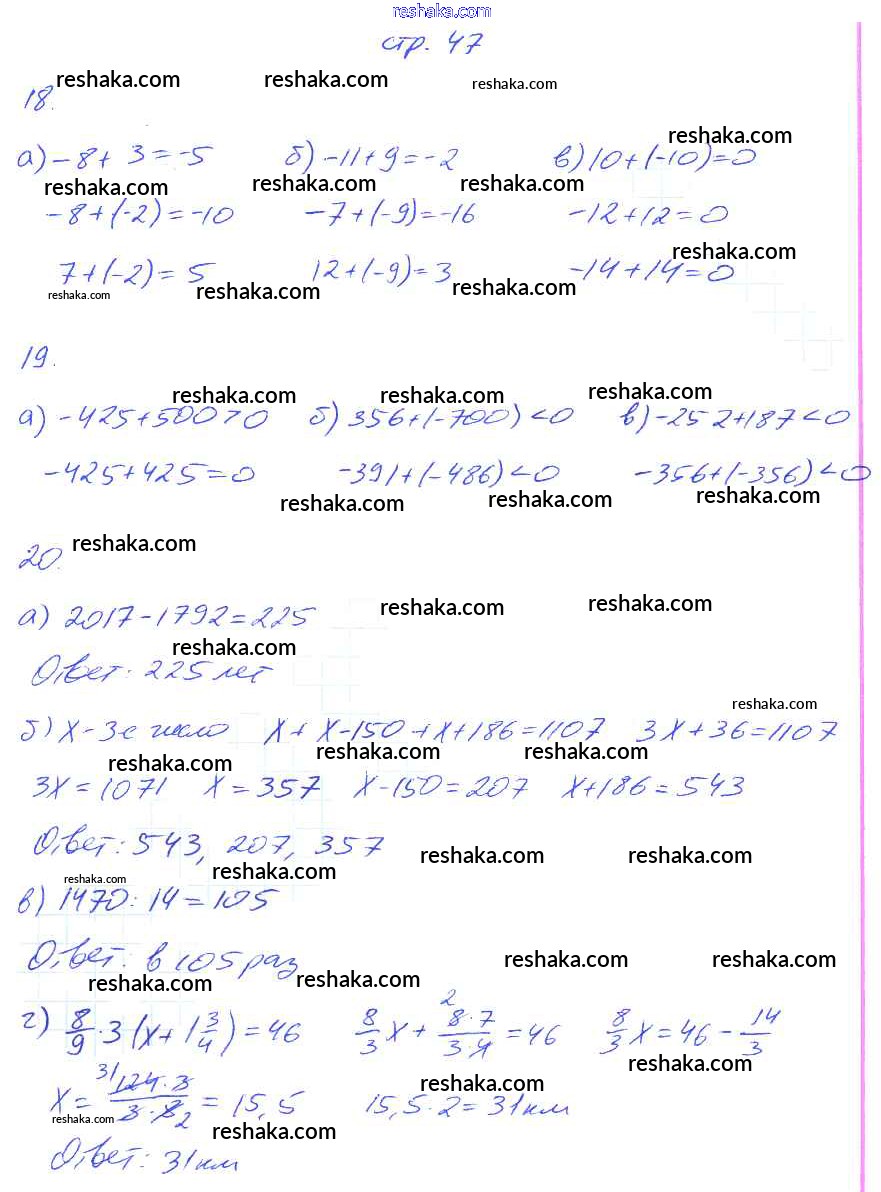 reshaka.com
стр. 47
reshaka.com reshaka.com reshaka.com
18.
reshaka.com
а) -8+ 3=-5 б) -11+9=-2 в) 10+(-10)=0
reshaka.com reshaka.com reshaka.com
-8+(-2)=-10 -7+(-9)=-16 -12+12=0
reshaka.com
7+(-2)=5 12+(-9)=3 -14+14=0
reshaka.com reshaka.com reshaka.com
19.
reshaka.com reshaka.com reshaka.com
а) -425+500>0 б) 356+(-700)<0 в) -252+187<0
-425+425=0 -391+(-486)<0 -356+(-356)<0
reshaka.com reshaka.com reshaka.com
20. reshaka.com
а) 2017-1792=225 reshaka.com reshaka.com
reshaka.com
Ответ: 225 лет
reshaka.com
б) x-3-е число x+x-150+x+186=1107 3x+36=1107
reshaka.com reshaka.com reshaka.com
3x=1071 x=357 x-150=207 x+186=543
Ответ: 543, 207, 357 reshaka.com reshaka.com
reshaka.com reshaka.com
в) 1470:14=105
Ответ: в 105 раз reshaka.com reshaka.com
reshaka.com reshaka.com
г) 8/9·3(x+1 3/4)=46 8/3 x+ 2 8·7/3·4=46 8/3 x=46-14/3
reshaka.com
x= 31 124·3/3·8 2=15,5 15,5·2=31км reshaka.com reshaka.com
reshaka.com reshaka.com
Ответ: 31км